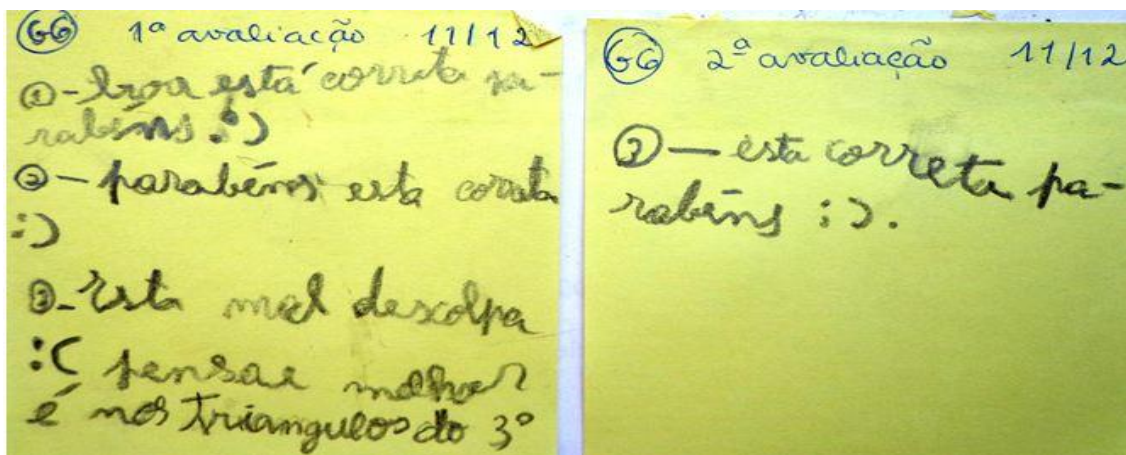 G6 1ª avaliação 11/12
①- Boa está correta pa-
rabéns :)
②- parabéns esta correta
:)
③- Esta mal descolpa
:( pensae melhor
é nos triangulos do 3º
G6 2ª avaliação 11/12
③- esta correta pa-
rabéns :).